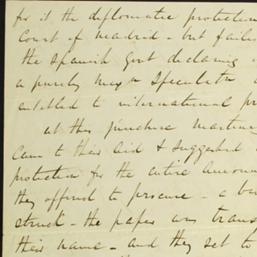 for it the diplomatic protection
Court of Madrid - but failed
the Spanish Govt declaring
a purely
entitled to international pr
at this juncture Martinez
Came to their Aid & suggested
protection for the entire amount
they offered to procure - a
struck - the paper was trans
their name - and they set to